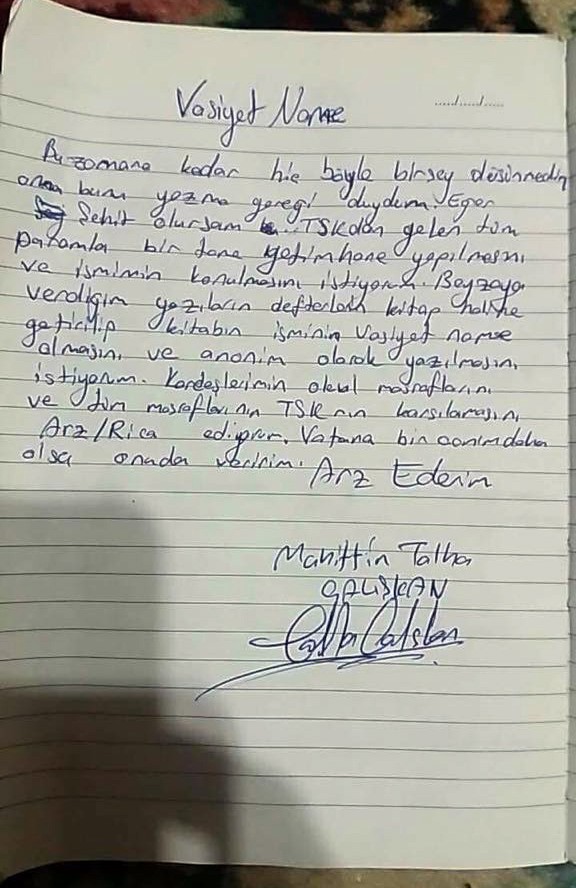 Vasiyet Name
...../...../......
Bu zamana kadar hic böyle birşey düsünmedim
ama bunu yazma geregi duydum. Eger
Şehit olursam TSKdan gelen tüm
paramla bir tane yetimhane yapılmasını
ve ismimin konulmasını istiyorum. Beyzaya
verdiğim yazıların defterlerin kitap haline
getirilip kitabın isminin Vasiyet name
olmasını ve anonim olarak yazılmasını
istiyorum. Kardeşlerimin okul masraflarını
ve tüm masraflarının TSK nın karsılamasını
Arz/Rica ediyorum. Vatana bin canımdaha
olsa onuda veririm. Arz Ederim
Mahittin Talha
ÇALIŞKAN